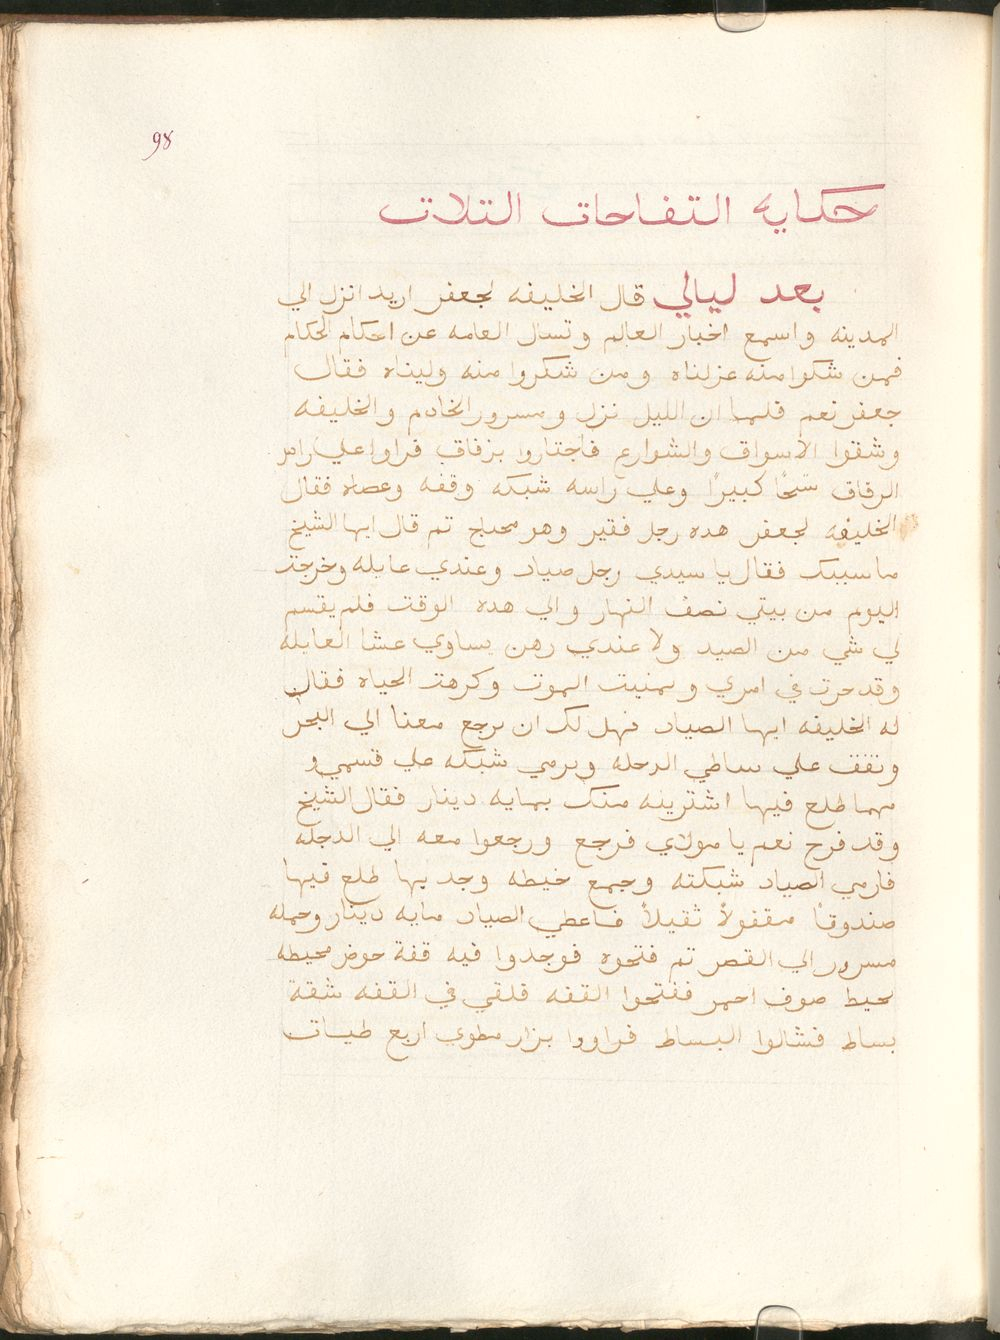 98
حكايه التفاحات التلات
بعد ليالي قال الخليفه لجعفر اريد انزل الي
المدينه واسمع اخبار العالم وتسال العامه عن احكام الحكام
فمن شكوا منه عزلناه ومن شكروا منه وليناه فقال
جعفر نعم فلما ان الليل نزل ومسرور الخادم والخليفه
وشقوا الاسواق والشوارع فاجتازوا بزقاق فراوا علي راس
الزقاق شيخًا كبيرًا وعلي راسه شبكه وقفه وعصاه فقال
الخليفه لجعفر هده رجل فقير وهو محتاج تم قال ايها الشيخ
ما سببك فقال يا سيدي رجل صياد وعندي عايله وخرجت
اليوم من بيتي نصف النهار والي هده الوقت فلم يقسم
لي شي من الصيد ولا عندي رهن يساوي عشا العايله
وقد حرت في امري وتمنيت الموت وكرهت الحياه فقال
له الخليفه ايها الصياد فهل لك ان ترجع معنا الي البحر
وتقف علي ساطي الدجله وترمي شبكه علي قسمي و
مهما طلع فيها اشترينه منك بمايه دينار فقال الشيخ
وقد فرح نعم يا مولاي فرجع ورجعوا معه الي الدجله
فارمي الصياد شبكته وجمع خيطه وجد بها طلع فيها
صندوقًا مقفولاً ثقيلاً فاعطي الصياد مايه دينار وحمله
مسرور الي القصر تم فتحوه فوجدوا فيه قفة خوض محيطه
لحيط صوف احمر ففتحوا القفه فلقي في القفه شقة
بساط فشالوا البساط فراووا بزار مطوي اربع طيات